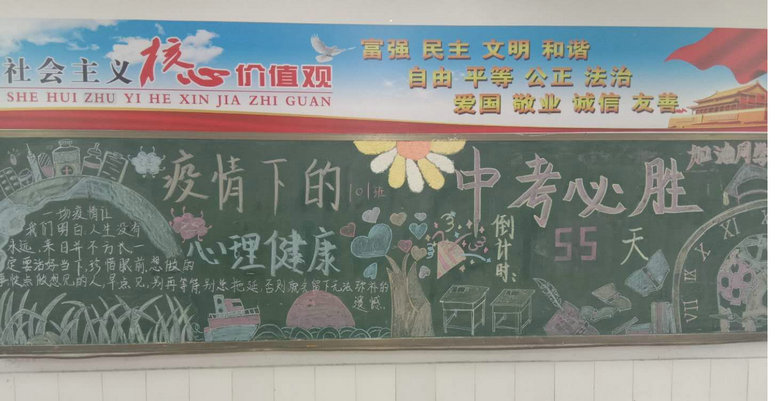 社会主义核心价值观
SHE HUI ZHU YI HE XIN JIA ZHI GUAN
富强 民主 文明 和谐
自由 平等 公正 法治
爱国 敬业 诚信 友善
疫情下的
心理健康
101班
一场疫情让
我们明白,人生没有
永远,来日并不方长
定要活好当下,珍惜眼前,想做的
事快来做想见的人早点见,别再等待别总拖延,否则就会留下无法弥补的
遗憾
中考必胜
倒计时:
55 天
加油同学
X
XI
VIII
VII
VI